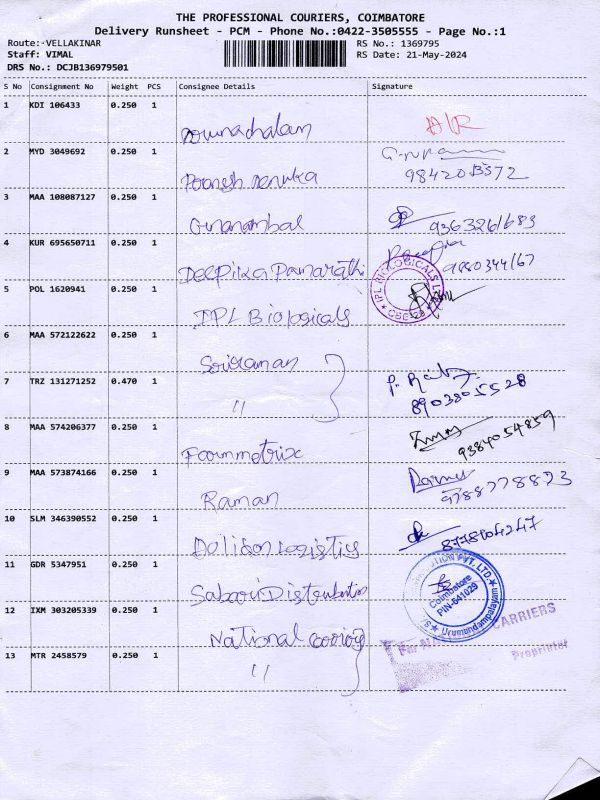 THE PROFESSIONAL COURIERS, COIMBATORE
Delivery Runsheet - PCM - Phone No.:0422-3505555 - Page No.:1
Route:-VELLAKINAR
RS No.: 1369795
Staff: VIMAL
RS Date: 21-May-2024
DRS No.: DCJB136979501
S No Consignment No Weight PCS Consignee Details Signature
1 KDI 106433 0.250 1
Arunachalam
D/R
2 MYD 3049692 0.250 1
Poonesh Renuka
3 MAA 108087127 0.250 1
Gnanambal
4 KUR 695650711 0.250 1
Deepika Pamarathi
9980344167
5 POL 1620941 0.250 1
IPL Biologicals
IPL BIOLOGICALS
6 MAA 572122622 0.250 1
Sriraman
7 TRZ 131271252 0.470 1
"
8903805528
8 MAA 574206377 0.250 1
Farmmetrix
9384054859
9 MAA 573874166 0.250 1
Raman
9788778873
10 SLM 346390552 0.250 1
Logistics
11 GDR 5347951 0.250 1
Sabari Distribution
PVT. LTD.
Coimbatore
PIN-641029
Urumandampalayam
12 IXM 303205339 0.250 1
National
CARRIERS
Proprietor
13 MTR 2458579 0.250 1
"